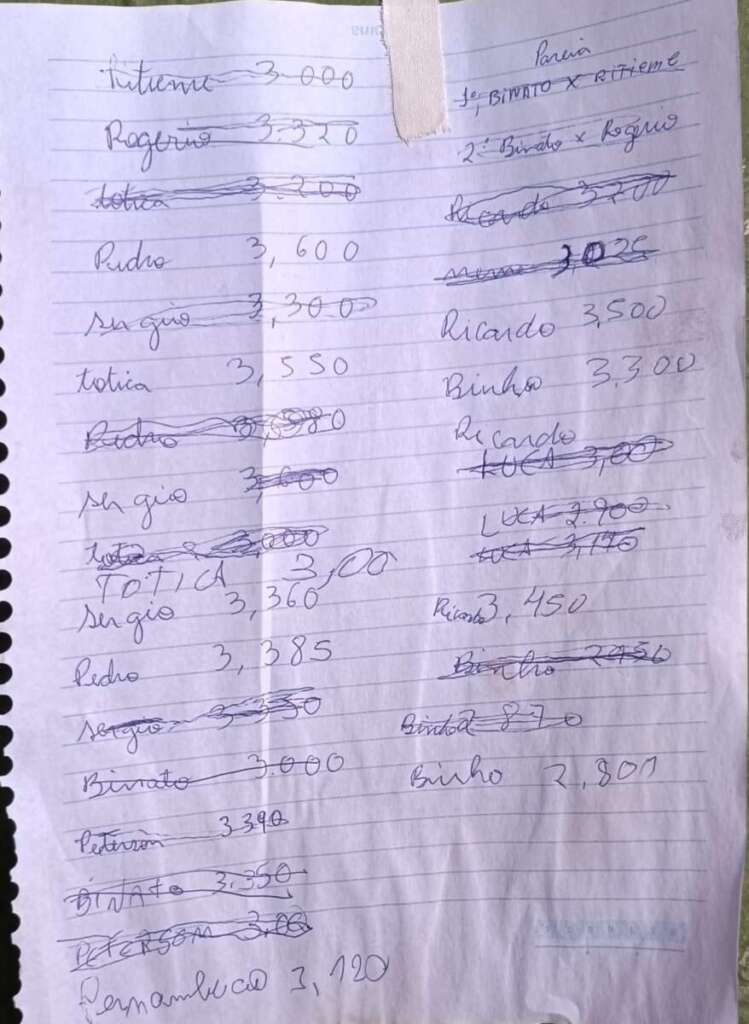 Ritieme 3.000
Rogerio 3.320
totica 3.200
Pedro 3,600
Sergio 3,300
totica 3,550
Pedro 3,580
Sergio 3,600
totica 3,000
TOTICA 3,00
Sergio 3,360
Pedro 3,385
Sergio 3350
Binato 3.000
Peterson 3390
BINATO 3.350
PETERSOM 3,00
Pernambuco 3,120
Pareia
1º, BINATO X RITIEME
2º Binato x Rogerio
Ricardo 3,200
3,025
Ricardo 3,500
Binho 3.300
Ricardo
LUCA 3,00
LUCA 2.900
LUCA 3,170
Ricardo 3,450
Binho 2950
Binho 2 870
Binho 2,801